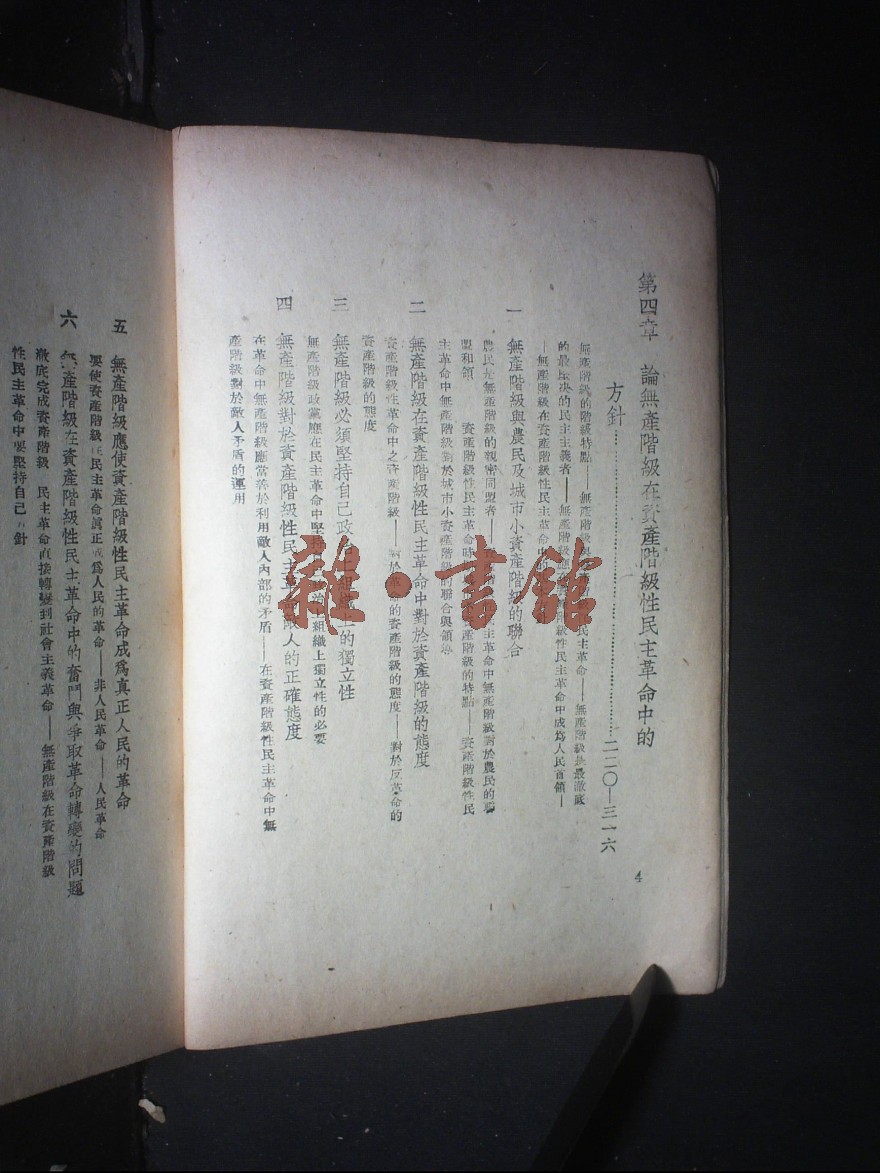 第四章 論無產階級在資產階級性民主革命中的
方針……二二〇—三一六
無產階級的階級特點——無產階級與——無產階級是最澈底
的最堅決的民主主義者——無產階級應在資產階級性民主革命中成爲人民首領—
—無產階級在資產階級性民主革命中的
一 無產階級與農民及城市小資產階級的聯合
農民是無產階級的親密同盟者——民主革命中無產階級對於農民的聯
盟和領 資產階級性民主革命時 資產階級的特點——資產階級性民
主革命中無產階級對於城市小資產階級的聯合與領導
二 無產階級在資產階級性民主革命中對於資產階級的態度
資產階級性革命中之資產階級——對於革命的資產階級的態度——對於反革命的
資產階級的態度
三 無產階級必須堅持自己政治上組織上的獨立性
無產階級政黨應在民主革命中堅持自己政治上組織上獨立性的必要
四 無產階級對於資產階級性民主革命敵人的正確態度
在革命中無產階級應當善於利用敵人內部的矛盾——在資產階級性民主革命中無
產階級對於敵人矛盾的運用
4
五 無產階級應使資產階級性民主革命成爲真正人民的革命
要使資產階級性民主革命真正成爲人民的革命——非人民革命——人民革命
六 無產階級在資產階級性民主革命中的奮鬥與爭取革命轉變的問題
澈底完成資產階級 民主革命直接轉變到社會主義革命——無產階級在資產階級
性民主革命中要堅持自己 針
雜·書館